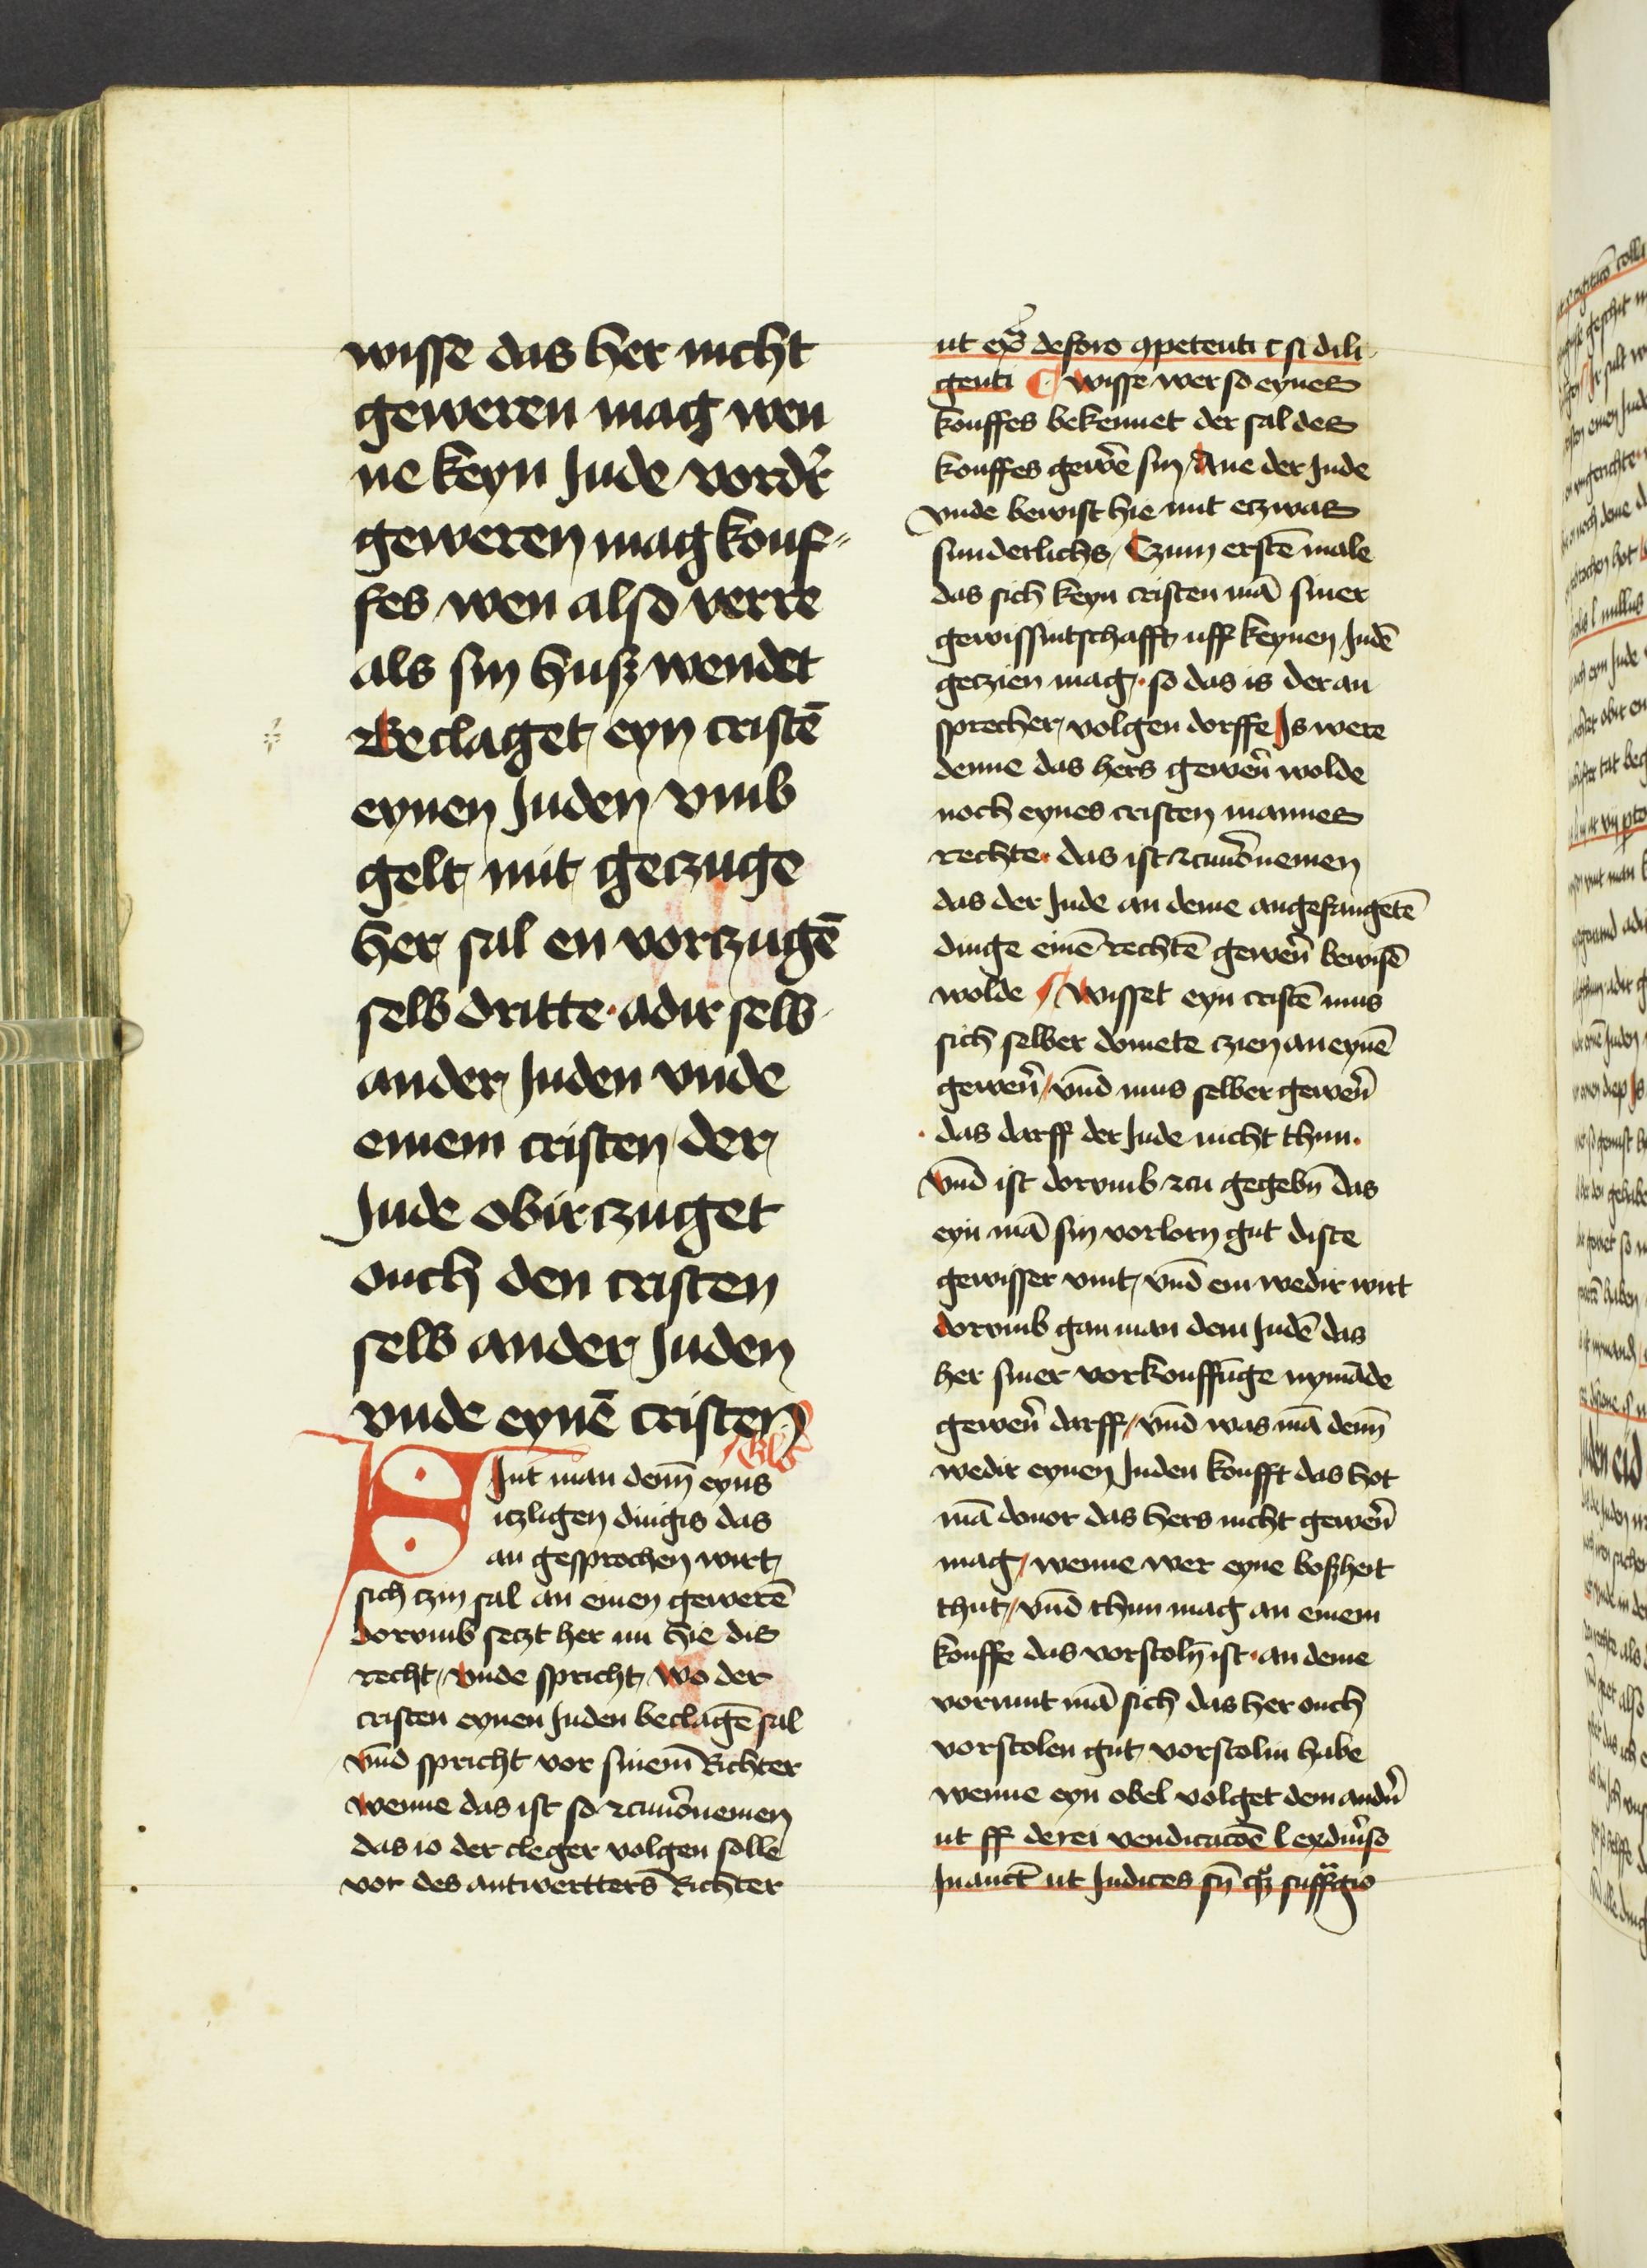 wisse das her nicht
geweren mag wen
ne keyn Jude vordˀ
geweren mag kouf⸗
fes wen also verre
als sin huß wendet
Beclaget eyn cristē
eynen Juden vmb
gelt mit geczuge
her sal en vorczugē
selb dritte adir selb
ander Juden vnde
einem cristen der
Jude obirczuget
ouch den cristen
selb ander Juden
vnde eynē cristen
Glˀ
Sint man dem̄ eyns
iczligen dingis das
an gesprochen wirt
sich czin sal an einen gewerē
dorvmb seczt her nu hie dis
recht / vnde spricht / wo der
cristen eynen Juden beclagē sal
vn̄d spricht vor sinem̄ Richter
wenne das ist so zcuuornemen
das io der cleger volgen solle
vor des antwertters Richter
ut ex̄ de foro ꝯpetenti c si dili
genti ¶ wisse wer so eynes
kouffes bekennet der sal des
kouffes gewē̄ sin / Ane der Jude
vnde bewist hie mit eczwas
sunderlichs / Czum erstē male
das sich keyn cristen mā siner
gewissintschafft uff keynen Judē
geczien mag · so das is der an
sprecher volgen dorffe Js were
denne das hers gewen̄ wolde
noch eynes cristen mannes
rechte · das ist zcuuōnemen
das der Jude an deme angefangetē
dinge einē rechtē gewen̄ bewisē
wolde / Wisset eyn cristē mus
sich selber domete czien an eynē
gewen̄ / vn̄d mus selber gewen̄
das darff der Jude nicht thun ·
vn̄d ist dorvmb zcu gegebn̄ das
eyn mā sin vorlorn gut diste
gewisser vint / vn̄d em wedir wirt
dorvmb gan man dem Judē das
her siner vorkouffūge nymāde
gewen̄ darff / vn̄d was mā dem̄
wedir eynen Juden koufft das hot
mā douor das hers nicht gewen̄
mag / wenne wer eyne boßheit
thut / vn̄d thun mag an einem
kouffe das vorstoln̄ ist · an deme
vormut mā sich das her ouch
vorstolen gut vorstolin habe
wenne eyn obel volget dem andn̄
ut ff de rei vendicacōē l ex diuˀso
Jn auct̄ ut Judices sn̄ qͦꝫ suffͣgio